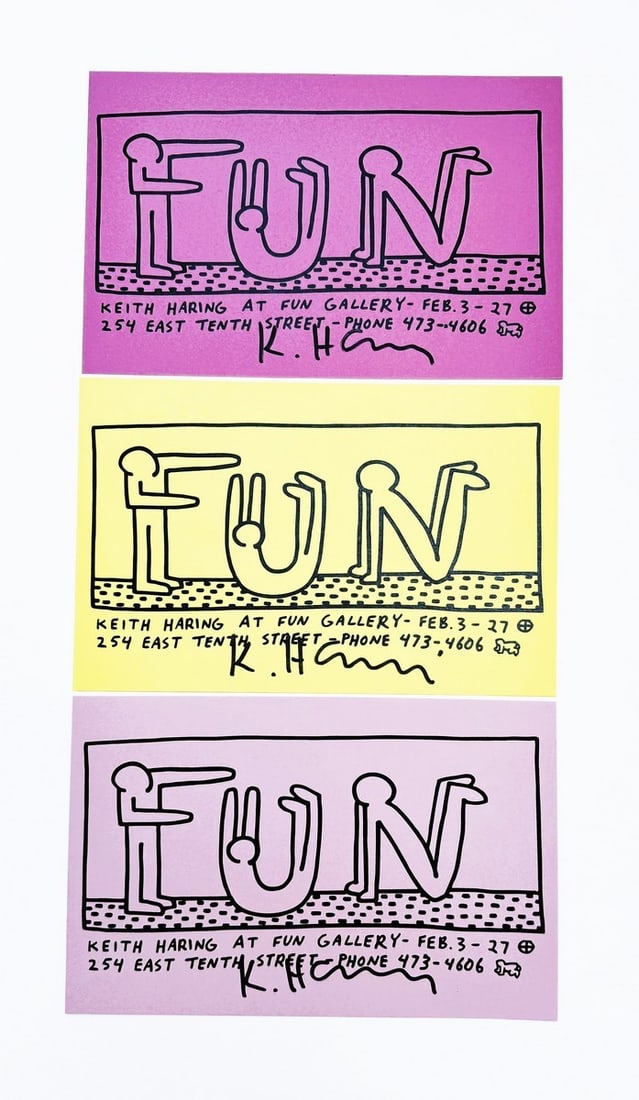 FUN
KEITH HARING AT FUN GALLERY - FEB. 3 - 27
254 EAST TENTH STREET - PHONE 473-4606
K. Haring
FUN
KEITH HARING AT FUN GALLERY - FEB. 3 - 27
254 EAST TENTH STREET - PHONE 473-4606
K. Haring
FUN
KEITH HARING AT FUN GALLERY - FEB. 3 - 27
254 EAST TENTH STREET - PHONE 473-4606
K. Haring